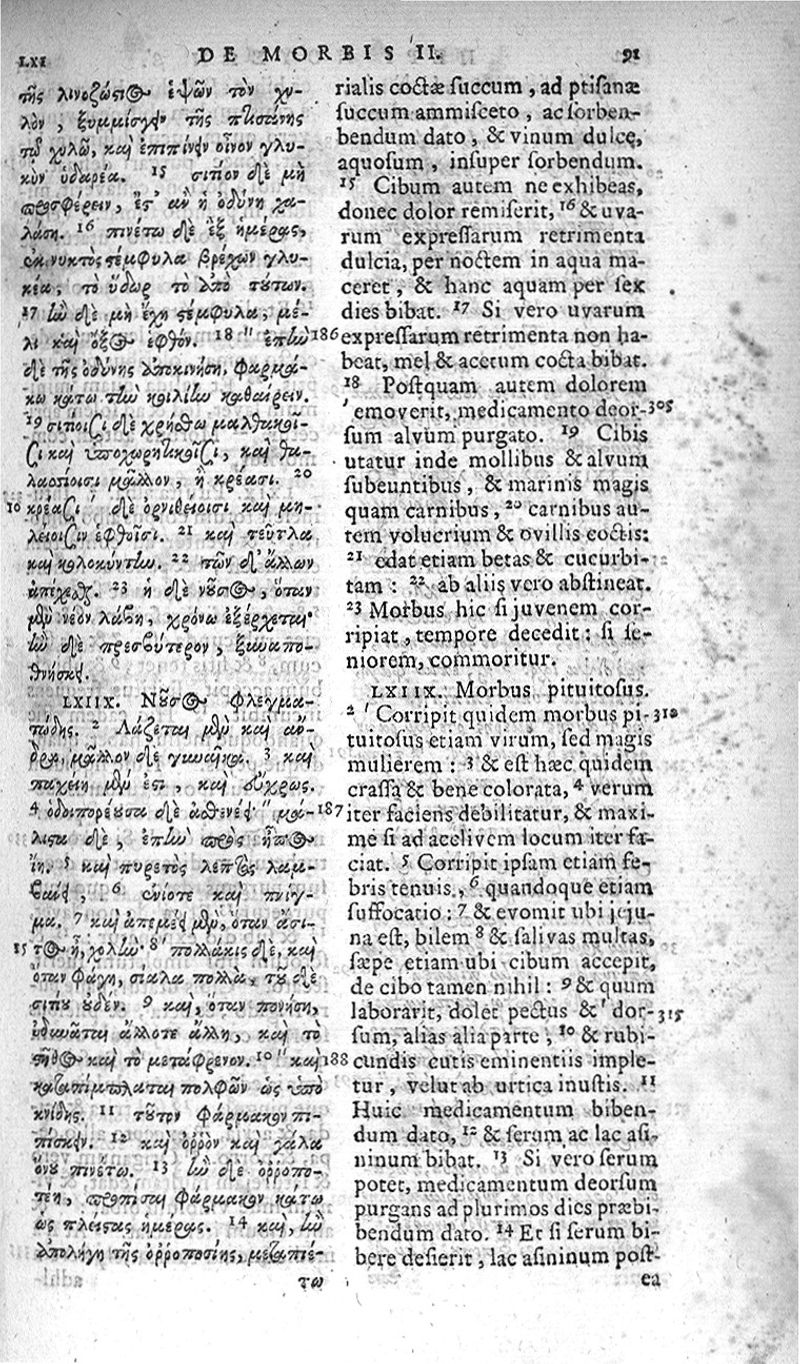 LXI
DE MORBIS II.
91
τῆς λινοζώστιος ἑψῶν τὸν χυ-
λὸν, ξυμμίσγειν τῆς πτισάνης
τῷ χυλῷ, καὶ ἐπιπίνειν οἶνον γλυ-
κὺν ὑδαρέα. 15 σιτίον δὲ μὴ
προσφέρειν, ἔς τ' ἂν ἡ ὀδύνη χα-
λάσῃ. 16 πινέτω δὲ ἓξ ἡμέρας,
ἐκ νυκτὸς στέμφυλα βρέχων γλυ-
κέα, τὸ ὕδωρ τὸ ἀπὸ τούτων.
17 ἢν δὲ μὴ ἔχῃ στέμφυλα, μέ-
λι καὶ ὄξος ἑφθόν. 18 " ἐπὴν 186
δὲ τῆς ὀδύνης ἀποκινήσῃ, φαρμά-
κῳ κάτω τὴν κοιλίην καθαίρειν.
19 σιτίοισι δὲ χρήσθω μαλθακοῖ-
σι καὶ ὑποχωρητικοῖσι, καὶ θα-
λασσίοισι μᾶλλον, ἢ κρέασι. 20
10 κρέασι ' δὲ ὀρνιθείοισι καὶ μη-
λείοισιν ἑφθοῖσι. 21 καὶ τεῦτλα
καὶ κολοκύντην. 22 τῶν δ' ἄλλων
ἀπέχεσθαι. 23 ἡ δὲ νοῦσος, ὅταν
μὲν νέον λάβῃ, χρόνῳ ἐξέρχεται·
ἢν δὲ πρεσβύτερον, ξυναπο-
θνήσκει.
LXIIX. Νοῦσος φλεγμα-
τώδης. 2 Λάζεται μὲν καὶ ἄν-
δρα, μᾶλλον δὲ γυναῖκα. 3 καὶ
παχείη μὲν ἐστι, καὶ εὔχρως.
4 ὁδοιπορέουσα δὲ ἀσθενεῖ· " μά- 187
λιστα δὲ, ἐπὴν πρὸς ἤπιος
ἴῃ. 5 καὶ πυρετὸς λεπτὸς λαμ-
βάνει, 6 ἐνίοτε καὶ πνίγ-
μα. 7 καὶ ἀπεμέει μὲν, ὅταν ἄσι-
15 τος ᾖ, χολὴν 8 ' πολλάκις δὲ, καὶ
ὅταν φάγῃ, σίαλα πολλὰ, τοῦ δὲ
σίτου οὐδέν. 9 καὶ, ὅταν πονήσῃ,
ὀδυνᾶται ἄλλοτε ἄλλῃ, καὶ τὸ
στῆθος καὶ τὸ μετάφρενον. 10 " καὶ 188
καταπίμπλαται πολφῶν ὡς ὑπὸ
κνίδης. 11 τοῦτον φάρμακον πι-
πίσκειν. 12 καὶ ὀῤῥὸν καὶ γάλα
ὄνου πινέτω. 13 ἢν δὲ ὀῤῥοπο-
τέῃ, προπῖσαι φάρμακον κάτω
ὡς πλείστας ἡμέρας. 14 καὶ, ἢν
ἀπολήγῃ τῆς ὀῤῥοποσίης, μεταπιέ-
τω
rialis coctæ succum, ad ptisanæ
succum ammisceto, ac sorben-
bendum dato, & vinum dulce,
aquosum, insuper sorbendum.
15 Cibum autem ne exhibeas,
donec dolor remiserit, 16 & uva-
rum expressarum retrimenta
dulcia, per noctem in aqua ma-
ceret, & hanc aquam per sex
dies bibat. 17 Si vero uvarum
expressarum retrimenta non ha-
beat, mel & acetum cocta bibat.
18 Postquam autem dolorem
'emoverit, medicamento deor- 305
sum alvum purgato. 19 Cibis
utatur inde mollibus & alvum
subeuntibus, & marinis magis
quam carnibus, 20 carnibus au-
tem volucrium & ovillis coctis:
21 edat etiam betas & cucurbi-
tam: 22 ab aliis vero abstineat.
23 Morbus hic si juvenem cor-
ripiat, tempore decedit: si se-
niorem, commoritur.
LXIIX. Morbus pituitosus.
2 ' Corripit quidem morbus pi- 310
tuitosus etiam virum, sed magis
mulierem: 3 & est hæc quidem
crassa & bene colorata, 4 verum
iter faciens debilitatur, & maxi-
me si ad acclivem locum iter fa-
ciat. 5 Corripit ipsam etiam fe-
bris tenuis, 6 quandoque etiam
suffocatio: 7 & evomit ubi jeju-
na est, bilem 8 & salivas multas,
sæpe etiam ubi cibum accepit,
de cibo tamen nihil: 9 & quum
laborarit, dolet pectus & ' dor- 315
sum, alias alia parte; 10 & rubi-
cundis cutis eminentiis imple-
tur, velut ab urtica inustis. 11
Huic medicamentum biben-
dum dato, 12 & serum ac lac asi-
ninum bibat. 13 Si vero serum
potet, medicamentum deorsum
purgans ad plurimos dies præbi-
bendum dato. 14 Et si serum bi-
bere desierit, lac asininum post-
ea